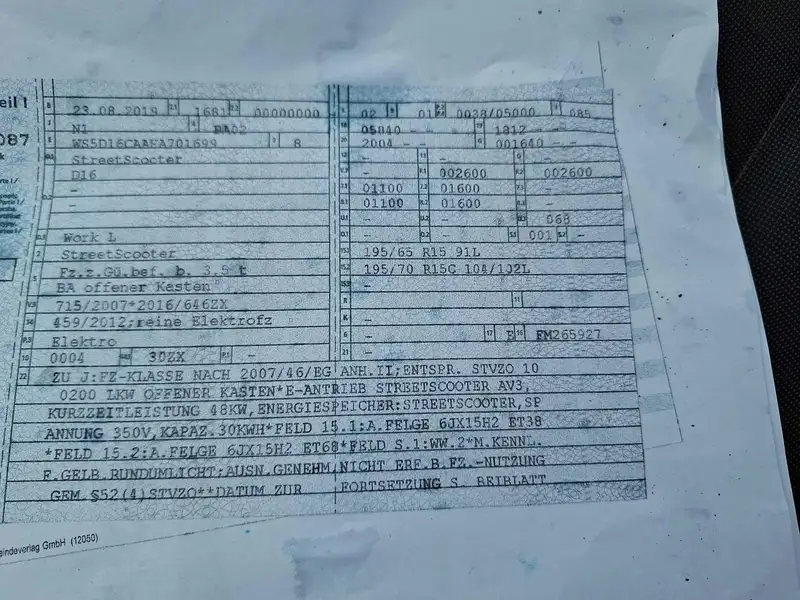 eil I
087
B 23.08.2019 2.1 1681 2.2 00000000 L 02 9 01 P.2 P.4 0038/05000 T 085
J N1 4 BA02 18 05840 - - 19 1812 - -
E WS5D16CAAFA701699 3 8 20 2004 - - G 001640 - -
StreetScooter - - -
D16 - 002600 002600
- 01100 01600 -
- 01100 01600 -
- - - 068
Work L - - 001 -
StreetScooter 195/65 R15 91L
Fz.z.Gü.bef. b. 3,5 t 195/70 R15C 104/102L
BA offener Kasten -
715/2007*2016/646ZX - 11
459/2012;reine Elektrofz -
Elektro - 17 E 16 FM265927
10 0004 30ZX P.1 - 21 -
22 ZU J:FZ-KLASSE NACH 2007/46/EG ANH.II;ENTSPR. STVZO 10
0200 LKW OFFENER KASTEN*E-ANTRIEB STREETSCOOTER AV3,
KURZZEITLEISTUNG 48KW,ENERGIESPEICHER:STREETSCOOTER,SP
ANNUNG 350V,KAPAZ.30KWH*FELD 15.1:A.FELGE 6JX15H2 ET38
*FELD 15.2:A.FELGE 6JX15H2 ET68*FELD S.1:WW.2*M.KENNL.
F.GELB.RUNDUMLICHT;AUSN.GENEHM.NICHT ERF.B.FZ.-NUTZUNG
GEM.§52(4)STVZO**DATUM ZUR FORTSETZUNG S. BEIBLATT
eindeverlag GmbH (12050)